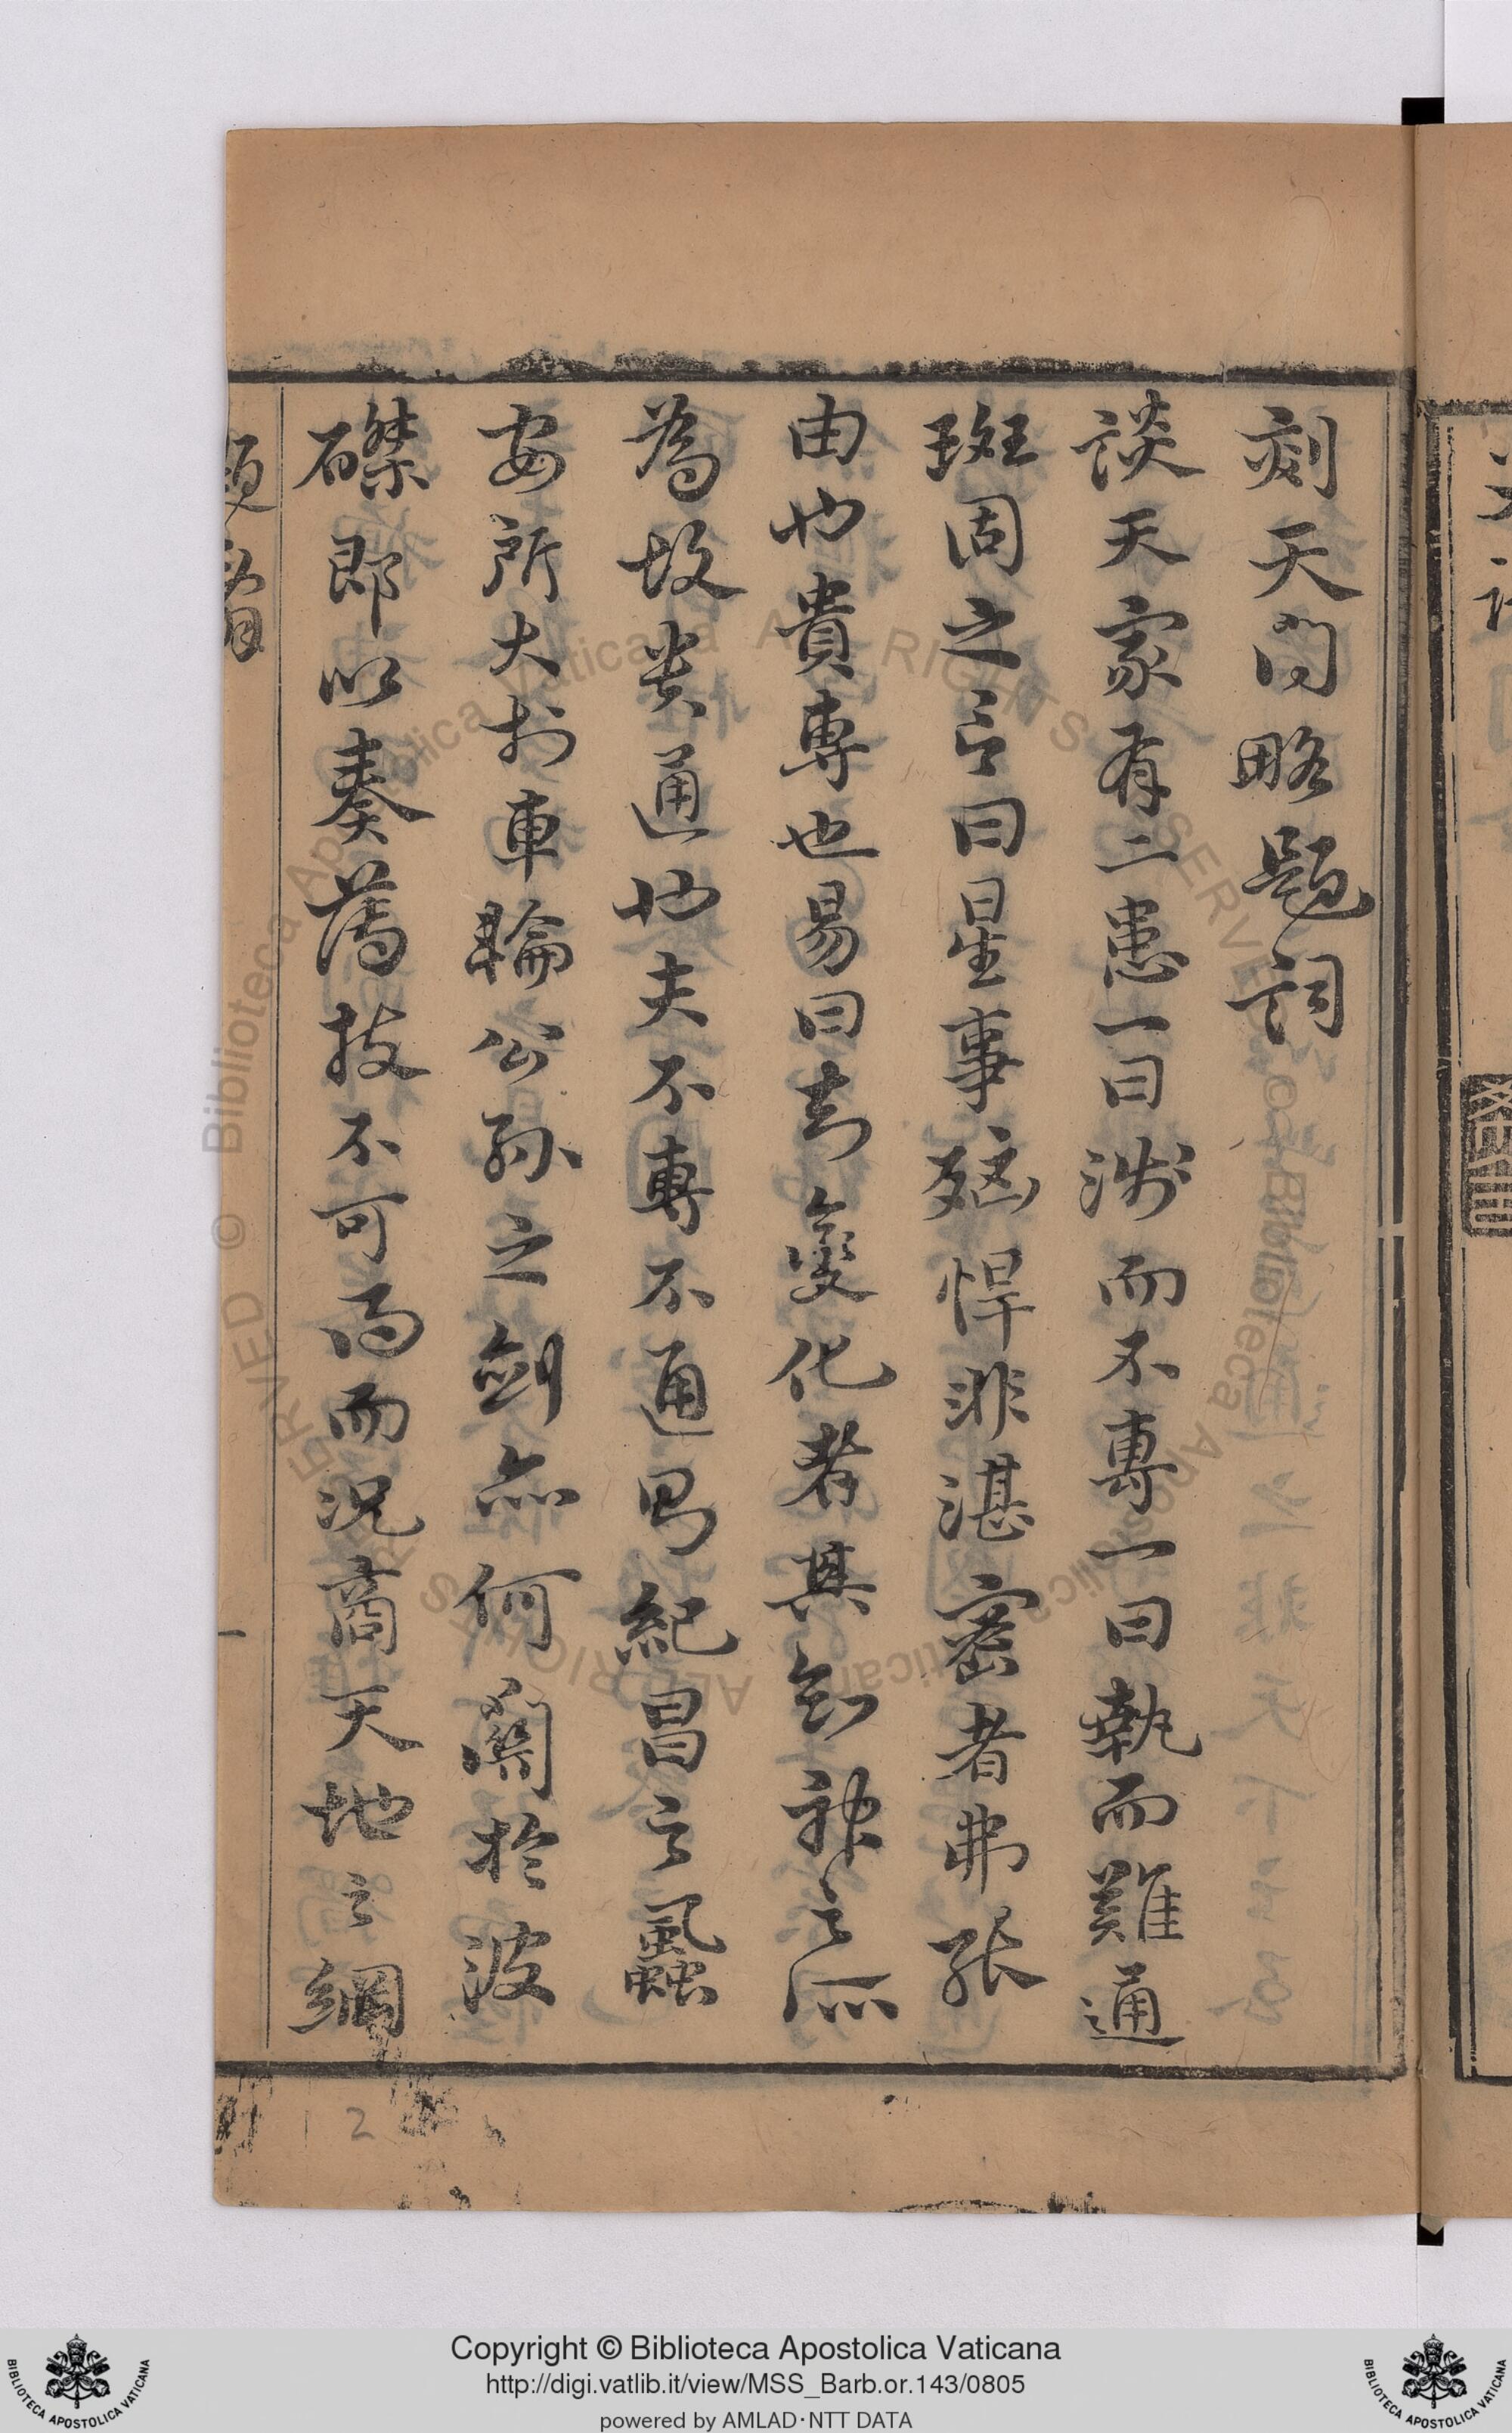 刻天問略題詞
談天家有二患一曰涉而不專一曰執而難通
班固之言曰星事㐫悍非湛密者弗張
由也貴專也易曰知變化者其知神之所
為故貴通也夫不專不通即紀昌之蝨
安所大於車輪公孫之劍亦何關於波
磔即以奏薄技不可得而况商天地之綱
一
2
Copyright © Biblioteca Apostolica Vaticana
http://digi.vatlib.it/view/MSS_Barb.or.143/0805
powered by AMLAD·NTT DATA
BIBLIOTECA APOSTOLICA VATICANA
BIBLIOTECA APOSTOLICA VATICANA